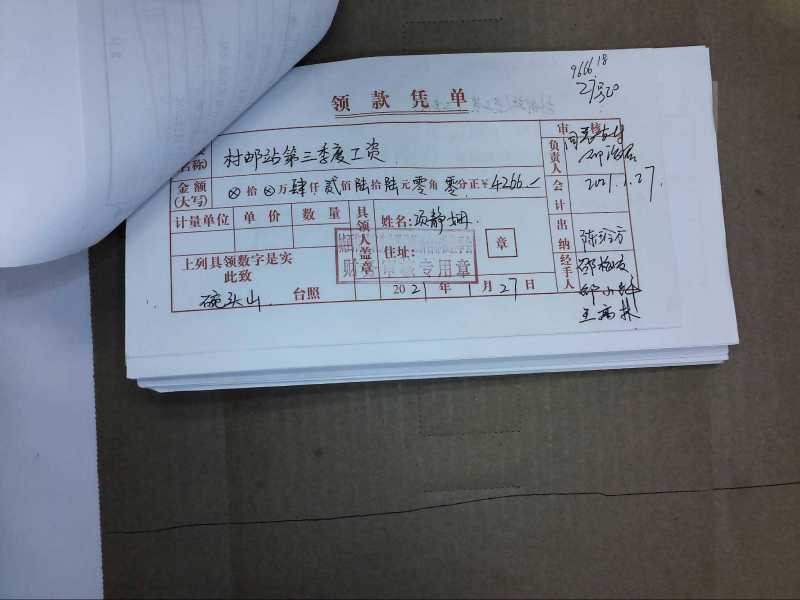 9666.18
27号
领款凭单
名称) 村邮站第三季度工资
金额(大写) ⊗拾⊗万肆仟贰佰陆拾陆元零角零分正¥4266
审核
负责人 同意支付
会计 2021.1.27
计量单位 单价 数量
具领人盖章 姓名:项静姗
住址:
章
财 专用章
出纳 陈
上列具领数字是实
此致
碗头山 台照
2021年 月27日
经手人